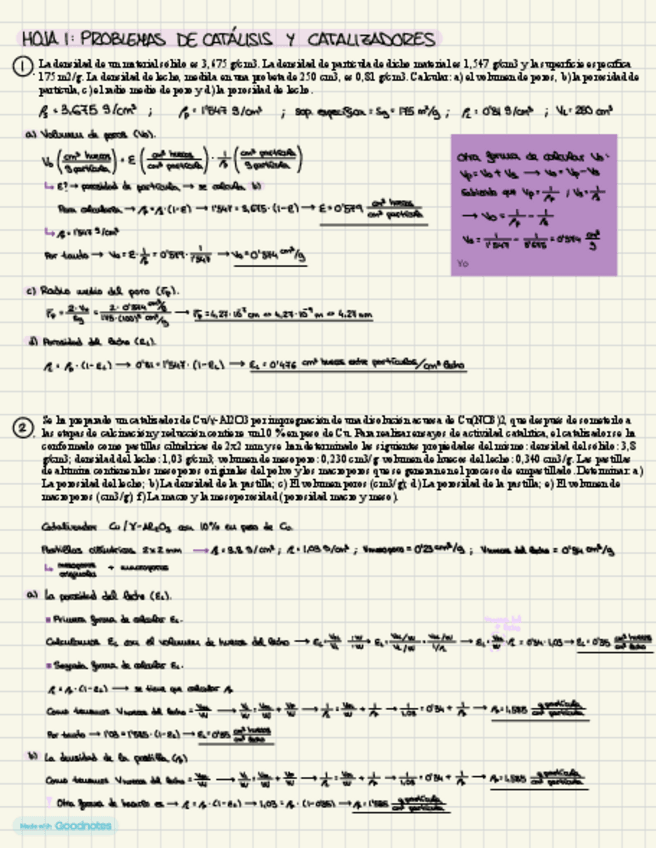 HOJA 1: PROBLEMAS DE CATÁLISIS Y CATALIZADORES
1 La densidad de un material sólido es 3,675 g/cm3. La densidad de partícula de dicho material es 1,547 g/cm3 y la superficie específica
175 m2/g. La densidad de lecho, medida en una probeta de 250 cm3, es 0,81 g/cm3. Calcular: a) el volumen de poros, b) la porosidad de
partícula, c) el radio medio de poro y d) la porosidad de lecho.
= 3,675 g/cm³ ; = 1'547 g/cm³ ; sup. específica = Sg = 175 m²/g ; = 0'81 g/cm³ ; VL = 250 cm³
a) Volumen de poros (Vo).
Otra forma de calcular Vo:
Vp = Vo + Vs → Vo = Vp - Vs
Sabiendo que
→ Vo =
Vo = 1/1'547 - 1/3'675 = 0'374 cm³/g
Vo
Vo (cm³ huecos / g partícula) = E (cm³ huecos / cm³ partícula) · (cm³ partícula / g partícula)
E? → porosidad de partícula → se calcula b)
Para calcularla → → 1'547 = 3,675 · (1-E) → E = 0'579 cm³ huecos / cm³ partícula
= 1'547 g/cm³
Por tanto → Vo = = 0'579 · 1/1'547 → Vo = 0'374 cm³/g
c) Radio medio del poro (rp).
→ rp = 4,27·10⁻⁷ cm ⇔ 4,27·10⁻⁹ m ⇔ 4.27 nm
d) Porosidad del lecho (EL).
· (1-EL) → 0'81 = 1'547 · (1-EL) → EL = 0'476 cm³ huecos entre partículas/cm³ lecho
2 Se ha preparado un catalizador de Cu/γ-Al2O3 por impregnación de una disolución acuosa de Cu(NO3)2, que después de someterlo a
las etapas de calcinación y reducción contiene un 10 % en peso de Cu. Para realizar ensayos de actividad catalítica, el catalizador se ha
conformado como pastillas cilíndricas de 2x2 mm y se han determinado las siguientes propiedades del mismo: densidad del sólido: 3,8
g/cm3; densidad del leche: 1,03 g/cm3; volumen de mesoporo: 0,230 cm3/g volumen de huecos del lecho: 0,340 cm3/g. Las pastillas
de alúmina contienen los mesoporos originales del polvo y los macroporos que se generan en el proceso de empastillado. Determinar: a)
La porosidad del lecho; b) La densidad de la pastilla; c) El volumen poros (cm3/g); d) La porosidad de la pastilla; e) El volumen de
macroporos (cm3/g) f) La macro y la mesoporosidad (porosidad macro y meso).
Catalizador Cu/γ-Al₂O₃ con 10% en peso de Cu
Pastillas cilíndricas 2x2 mm → = 3.8 g/cm³ ; = 1,03 g/cm³ ; Vmesoporo = 0'23 cm³/g ; Vhuecos del lecho = 0'34 cm³/g
mesoporos originales + macroporos
a) La porosidad del lecho (EL).
Primera forma de calcular EL.
Calculamos EL con el volumen de huecos del lecho → = 0'34 · 1,03 → EL = 0'35 cm³ huecos / cm³ lecho
Segunda forma de calcular EL.
· (1-EL) → se tiene que calcular
Como tenemos Vhuecos del lecho = → 1/1,03 = 0'34 + → = 1,585 g partícula / cm³ partícula
Por tanto → 1'03 = 1'585 · (1-EL) → EL = 0'35 cm³ huecos / cm³ lecho
b) La densidad de la pastilla
Como tenemos Vhuecos del lecho = → 1/1,03 = 0'34 + → = 1,585 g partícula / cm³ partícula
Otra forma de hacerlo es → · (1-EL) → 1,03 = · (1-0'35) → = 1'585 g partícula / cm³ partícula
Made with Goodnotes